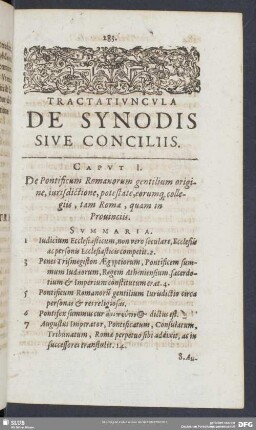 283.
TRACTATIVNCVLA
DE SYNODIS
SIVE CONCILIIS.
CAPVT I.
De Pontificum Romanorum gentilium origi-
ne, iurisdictione, potestate, eorumq; colle-
giis, tam Romæ, quam in
Prouinciis.
SVMMARIA.
1 Iudicium Ecclesiasticum, non vero seculare, Ecclesiis
ac personis Ecclesiasticis competit. 2.
3 Penes Trismegiston Ægyptiorum, Pontificem sum-
mum Iudæorum, Regem Atheniensium, sacerdo-
tium & Imperium constitutum erat. 4.
5 Pontificum Romanorū gentilium Iurisdictio circa
personas & res religiosas.
6 Pontifex summus cur dictus est.
7 Augustus Imperator, Pontificatum, Consulatum,
Tribunatum, Romæ perpetuo sibi addixit, ac in
successores transtulit. 14.
8. Au-
SLUB
DFG